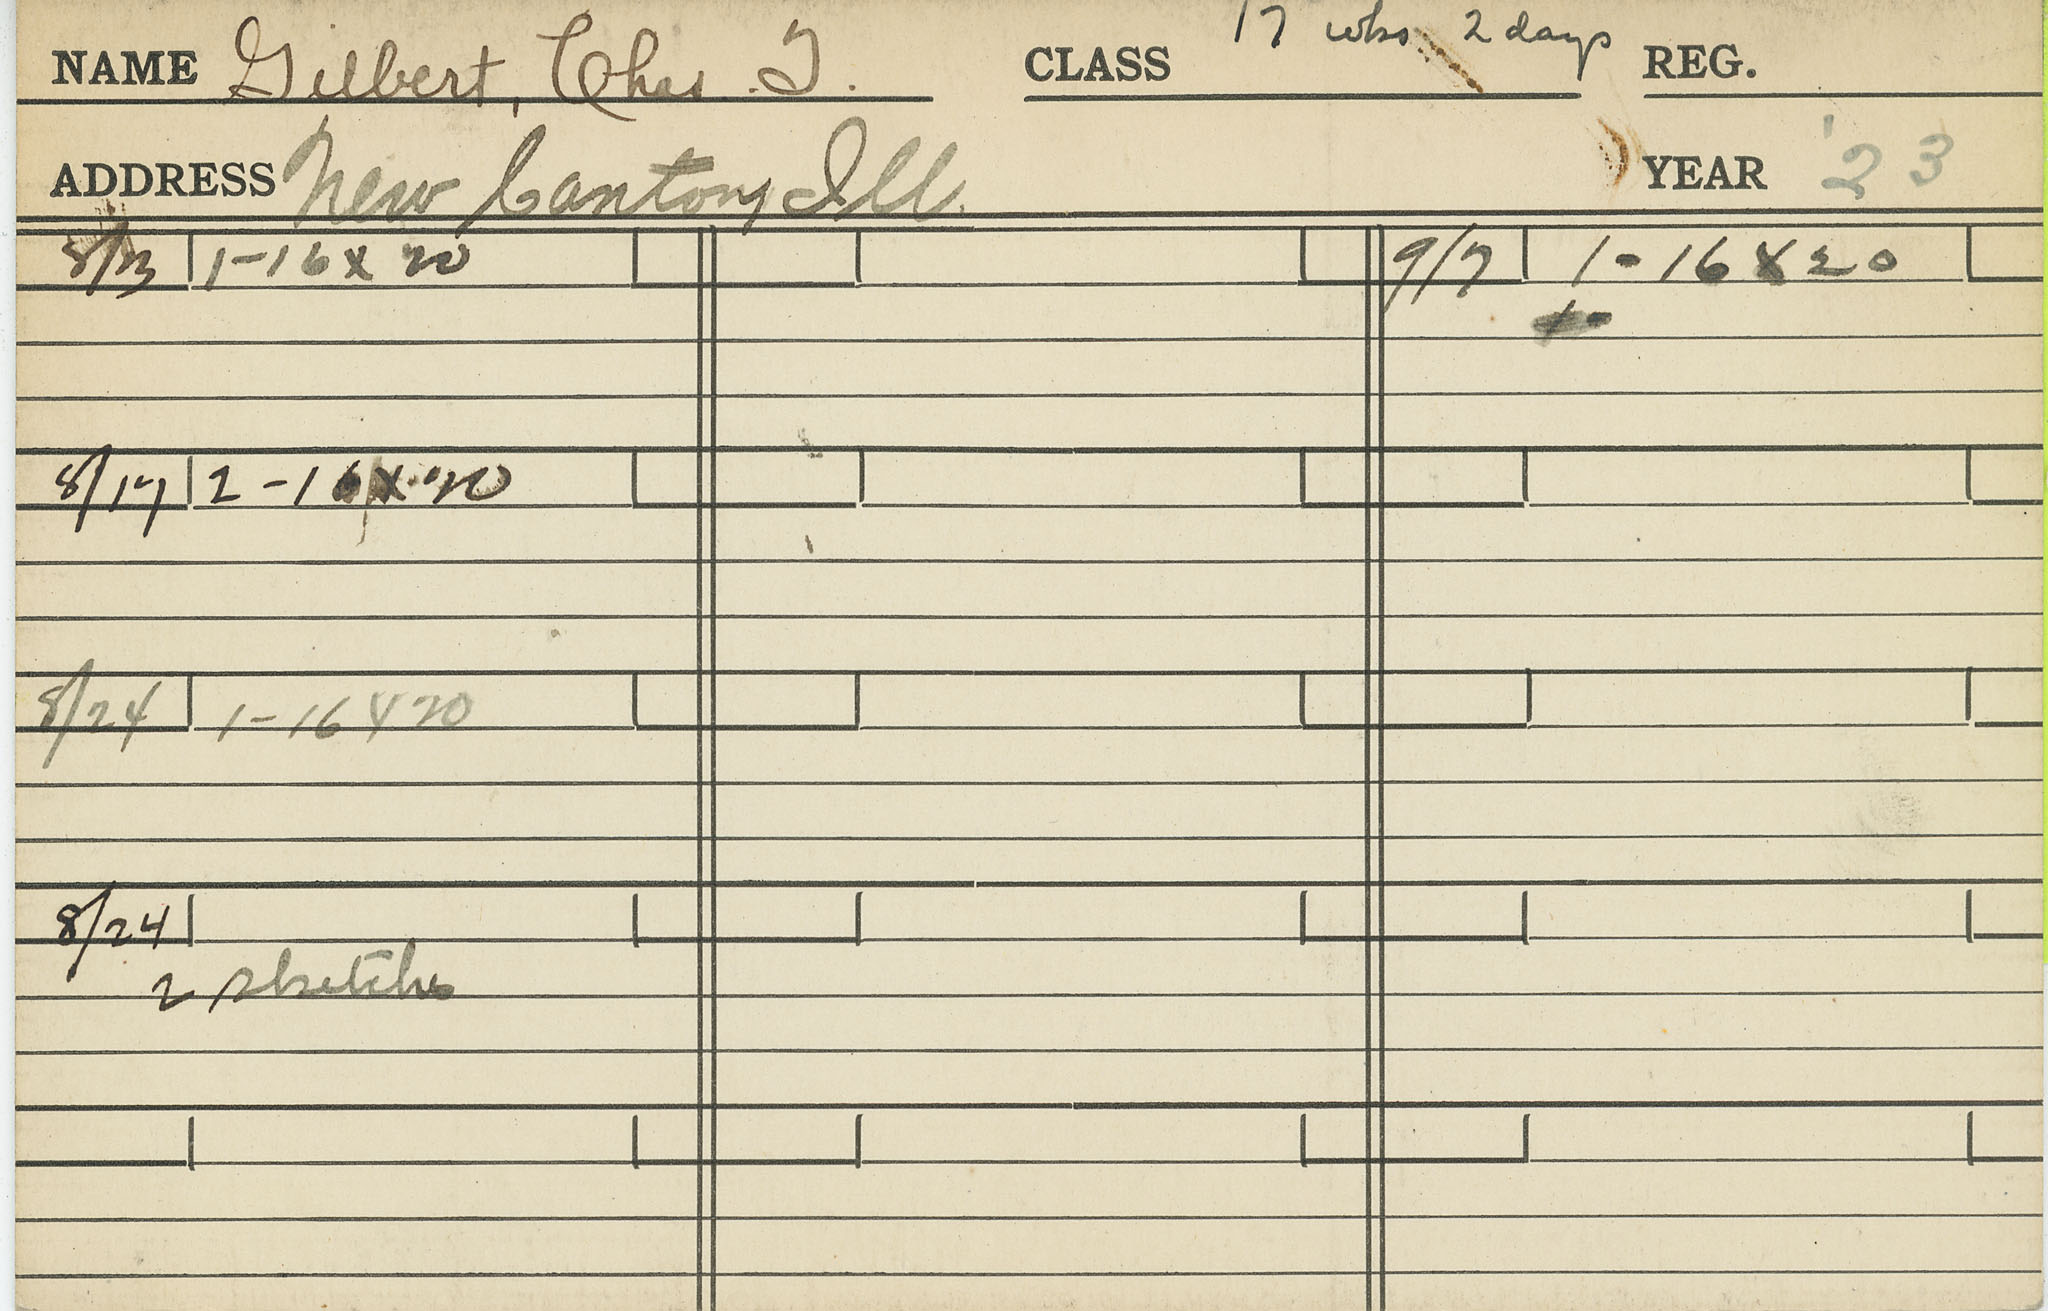 NAME Gilbert, Chas. T. CLASS 17 wks 2 days REG.
ADDRESS New Canton, Ill. YEAR '23
8/13 1-16 x 20 9/7 1-16 x 20
1-
8/17 2-16 x 20
8/24 1-16 x 20
8/24
2 sketches